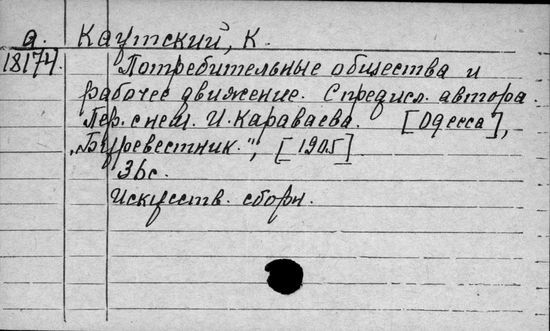 а. Каутский, К.
18174. Потребительные общества и
рабочее движение. С предисл. автора.
Пер. с нем. И. Караваева. [Одесса],
„Буревестник.", [1905]
36с.
Искусств. сборн.